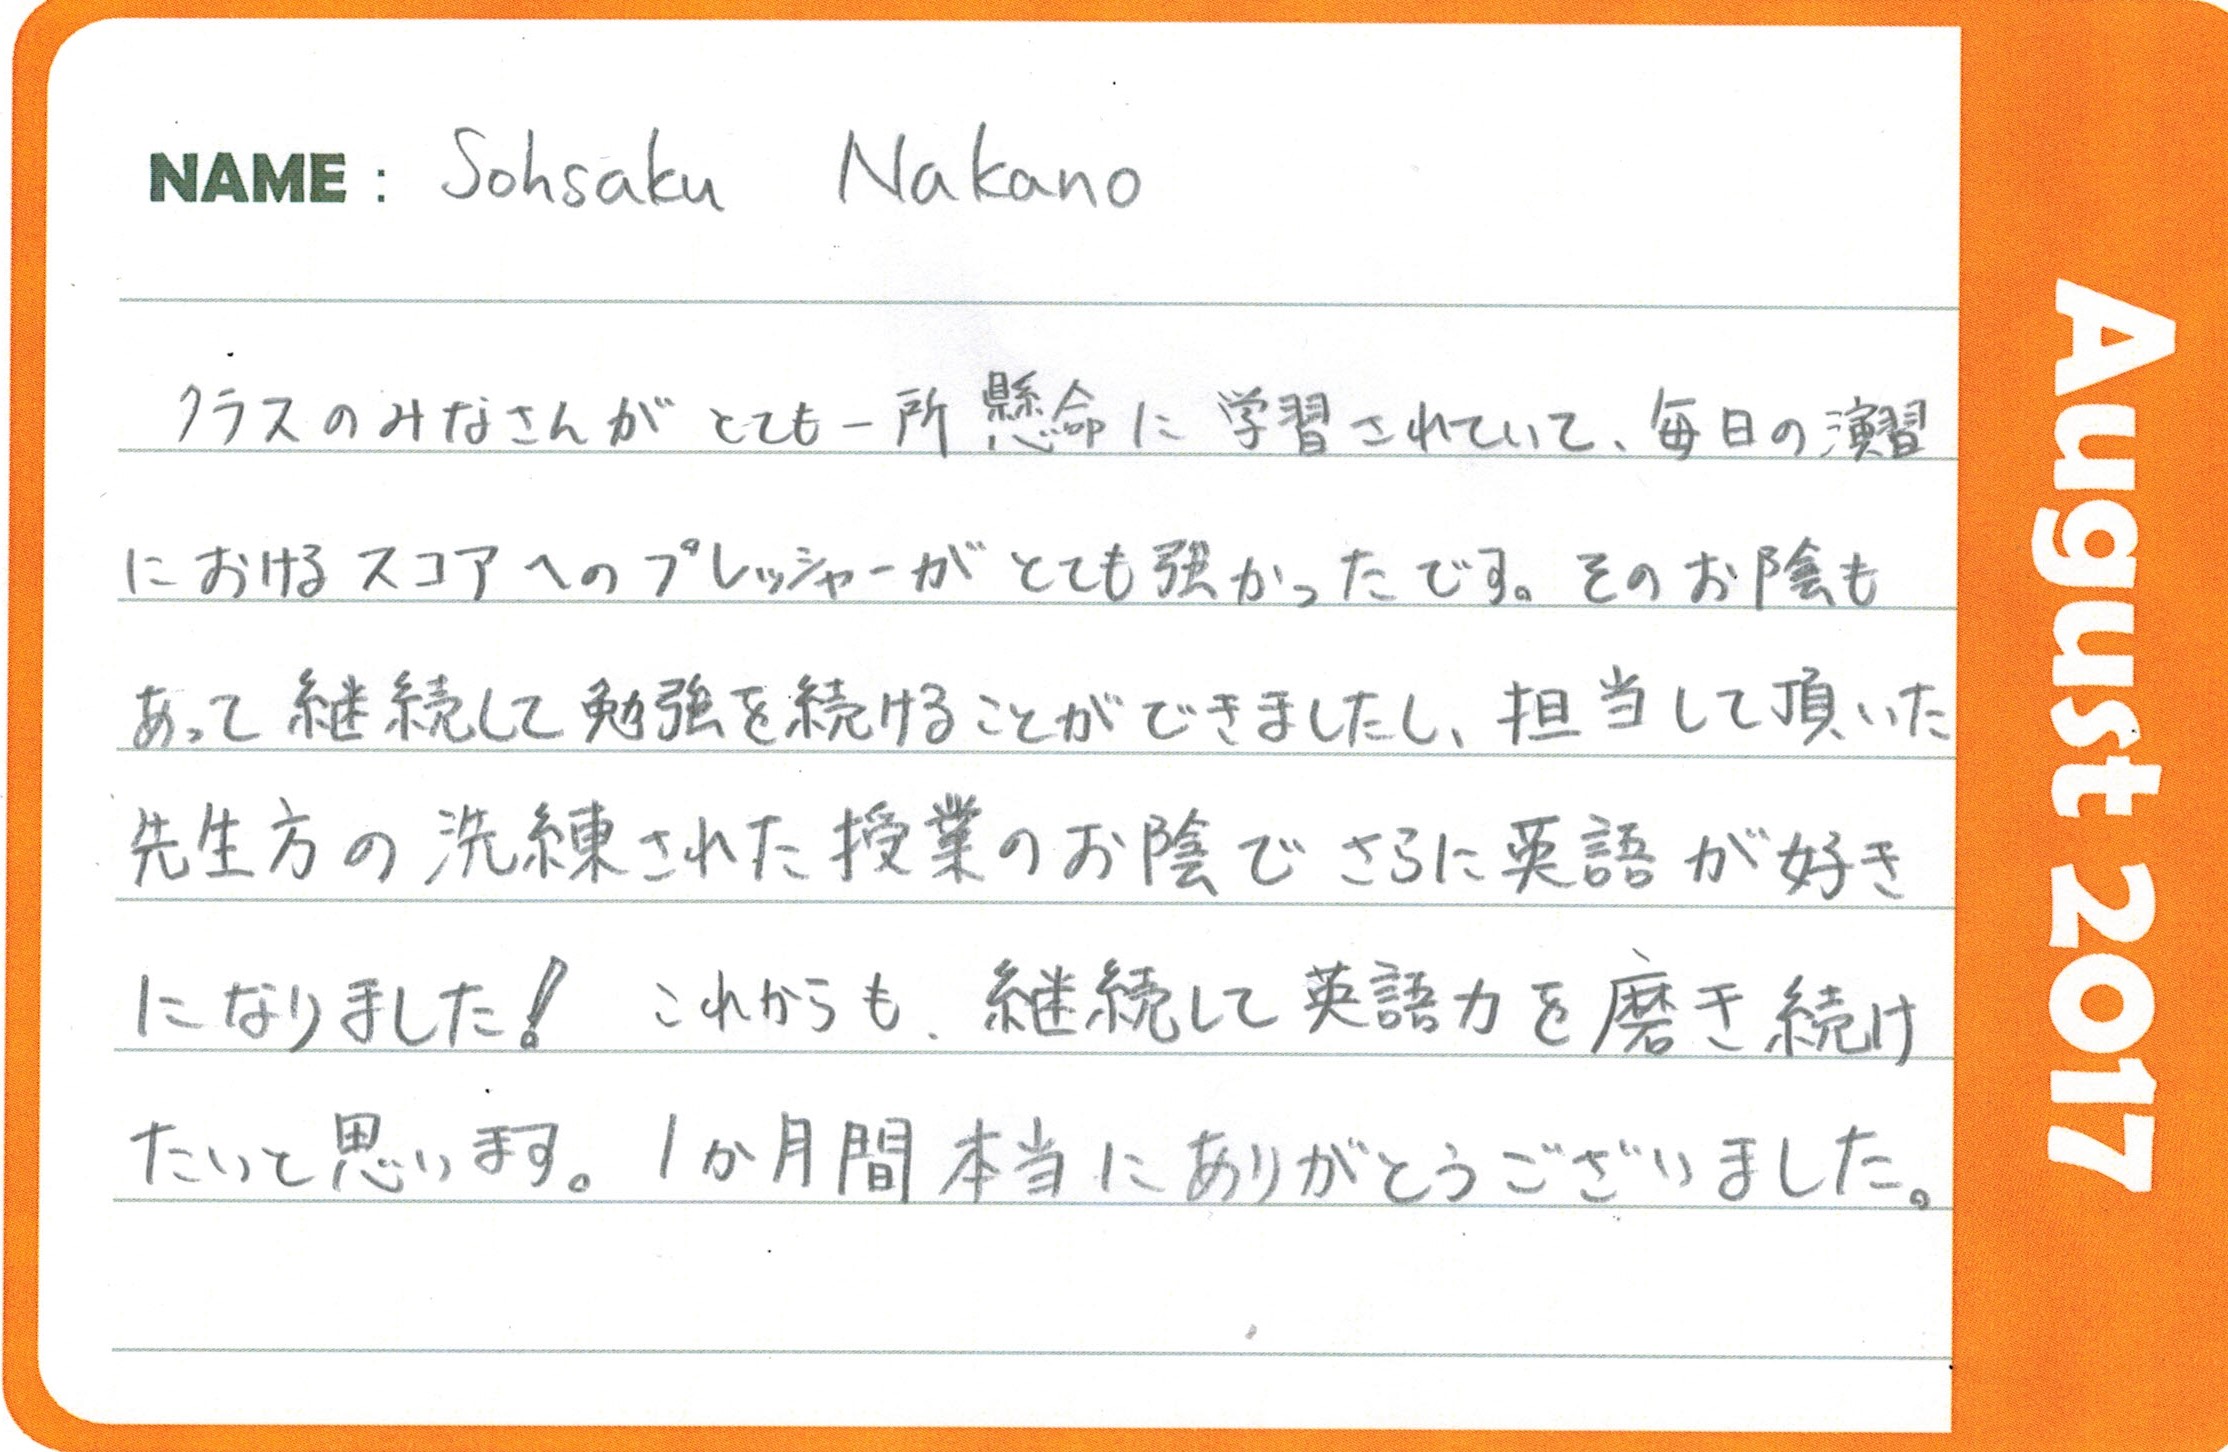 NAME : Sohsaku Nakano
クラスのみなさんがとても一所懸命に学習されていて、毎日の演習
におけるスコアへのプレッシャーがとても強かったです。そのお陰も
あって継続して勉強を続けることができましたし、担当して頂いた
先生方の洗練された授業のお陰でさらに英語が好き
になりました! これからも、継続して英語力を磨き続け
たいと思います。1か月間本当にありがとうございました。
August 2017